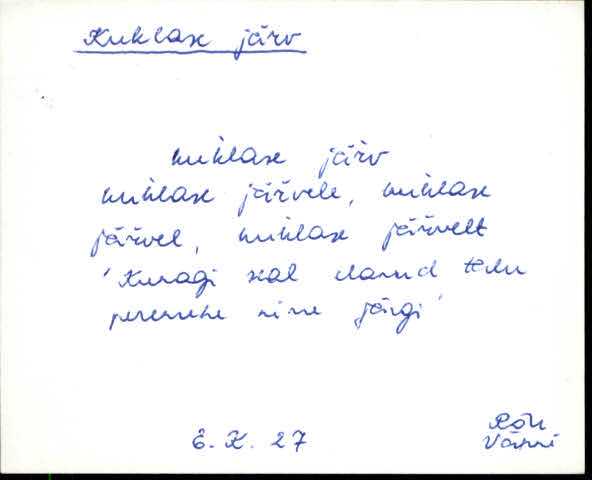 Kuklase järv
kuklase järv
kuklase järvele, kuklase
järvel, kuklase järvelt
'Kunagi seal elanud
peremehe nime järgi'
E. K. 27